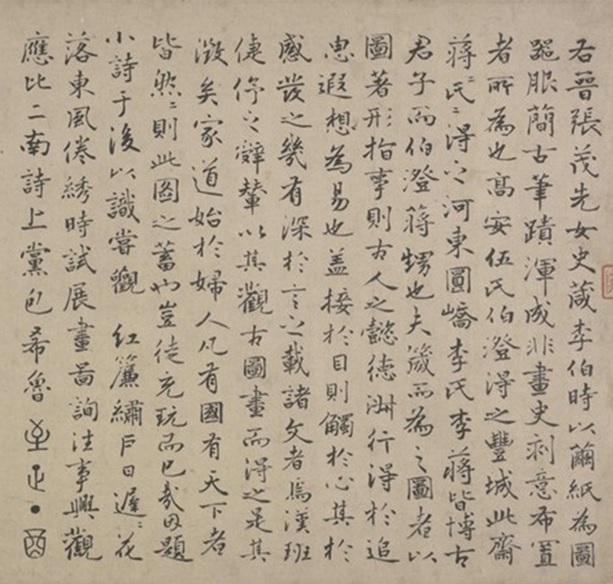 右晉張茂先女史箴李伯時以繭紙為圖
器服簡古筆蹟渾成非畫史刻意布置
者所為也高安伍氏伯澄得之豐城此齋
蔣氏〻得之河東圓嶠李氏李蔣皆博古
君子而伯澄蔣甥也夫箴而為之圖者以
圖著形指事則古人之懿德淑行得於追
思遐想為易也蓋接於目則觸於心其於
感發之幾有深於言之載諸文者焉漢班
倢伃之辭輦以其觀古圖畫而得之是其
澂矣家道始於婦人凡有國有天下者
皆然〻則此圖之蓄也豈徒充玩而已哉因題
小詩于後以識嘗觀 紅簾繡戶日遲〻花
落東風倦綉時試展畫啚詢往事興觀
應比二南詩上黨包希魯